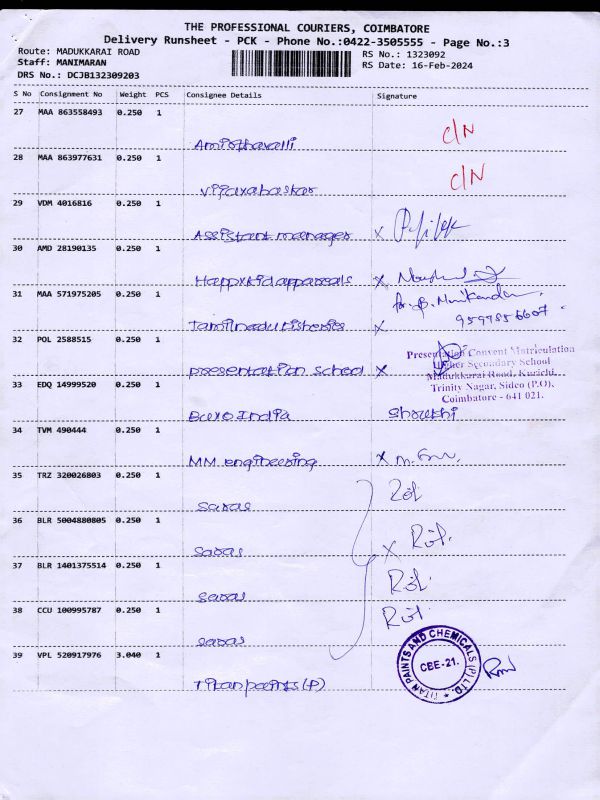 THE PROFESSIONAL COURIERS, COIMBATORE
Delivery Runsheet - PCK - Phone No.:0422-3505555 - Page No.:3
Route: MADUKKARAI ROAD
RS No.: 1323092
Staff: MANIMARAN
RS Date: 16-Feb-2024
DRS No.: DCJB132309203
S No Consignment No Weight PCS Consignee Details Signature
27 MAA 863558493 0.250 1
Amirthavalli C/N
28 MAA 863977631 0.250 1
Vijayabaskar C/N
29 VDM 4016816 0.250 1
Assistant manager x
30 AMD 28190135 0.250 1
Happykid apparals x
31 MAA 571975205 0.250 1
Tamilnadu fisheries x
9597856607
32 POL 2588515 0.250 1
presentation school x
Presentation Convent Matriculation
Higher Secondary School
Madukkarai Road, Kurichi,
Trinity Nagar, Sidco (P.O),
Coimbatore - 641 021.
33 EDQ 14999520 0.250 1
Buro India
34 TVM 490444 0.250 1
MM engineering x
35 TRZ 320026803 0.250 1
saras
36 BLR 5004880805 0.250 1
saras x
37 BLR 1401375514 0.250 1
saras
38 CCU 100995787 0.250 1
saras
39 VPL 520917976 3.040 1
Titan paints (P)
TITAN PAINTS AND CHEMICALS (P) LTD.
CBE-21.